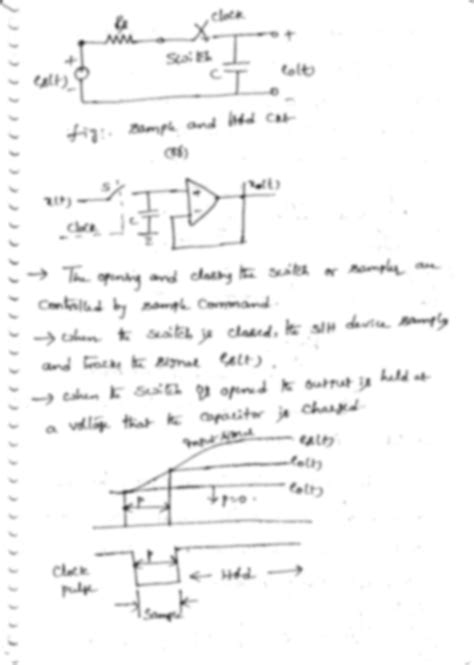 Rs
Clock
+
Switch
C
es(t)
eo(t)
-
fig:- Sample and Hold Ckt
(or)
S
x(t)
C
Clock
+
-
→ The opening and closing the switch or sampler are
controlled by sample command.
→ when the switch is closed, the S/H device samples
and tracks the signal es(t).
→ when the switch is opened the output is held at
a voltage that the capacitor is charged.
Input signal
es(t)
eo(t)
eo(t)
P
p=0.
Clock
pulse
P
Hold
Sample